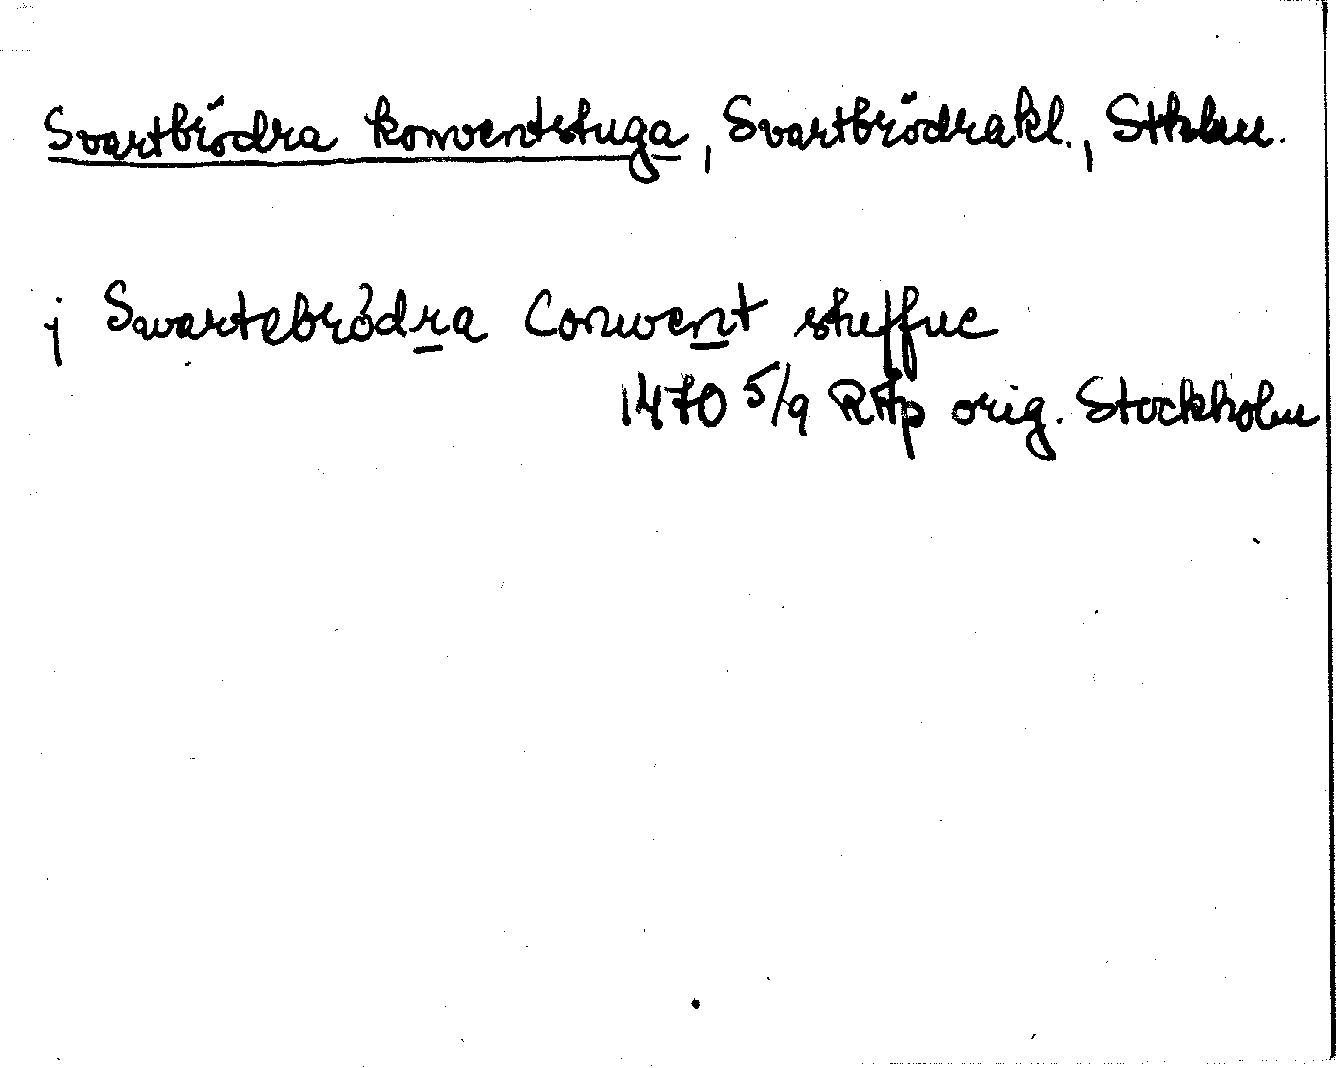 Svartbrödra konventstuga, Svartbrödrakl., Sthlm.
j Swartebrödra Conwent stuffue
1470 5/9 RAp orig. Stockholm